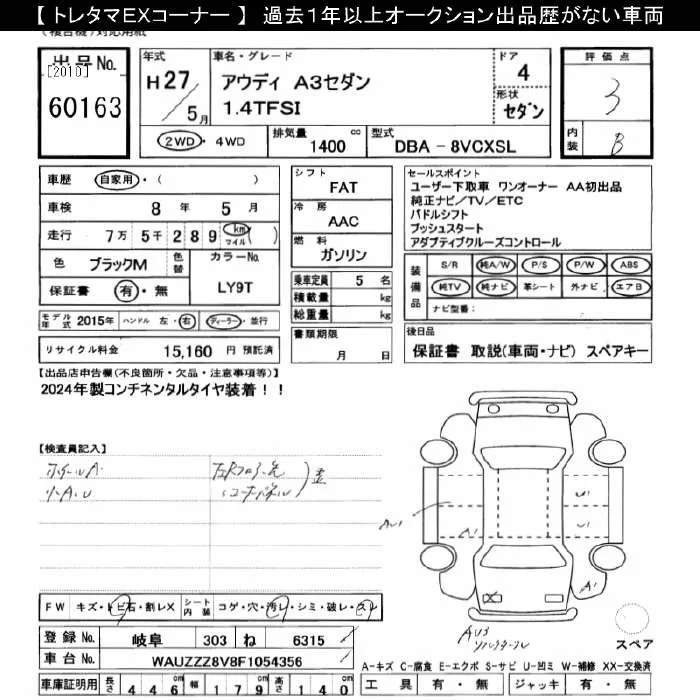 【 トレタマEXコーナー 】 過去1年以上オークション出品歴がない車両
出品No.
[2010]
60163
年式
H27/5月
車名・グレード
アウディ A3セダン
1.4TFSI
ドア
4
形状
セダン
評価点
3
内装
B
2WD ・ 4WD
排気量 1400 cc
型式 DBA - 8VCXSL
車歴 自家用・( )
車検 8 年 5 月
走行 7万 5千 2 8 9 km マイル( )
色 ブラックM 色替 カラーNo. LY9T
保証書 有・無
モデル年式 2015年 ハンドル 左・右 ディーラー・並行
リサイクル料金 15,160 円 預託済
シフト
FAT
冷房
AAC
燃料
ガソリン
乗車定員 5 名
積載量 kg
総重量 kg
書類期限
月 日
セールスポイント
ユーザー下取車 ワンオーナー AA初出品
純正ナビ/TV/ETC
パドルシフト
プッシュスタート
アダプティブクルーズコントロール
装備品
S/R 純A/W P/S P/W ABS
純TV 純ナビ 革シート 外ナビ エアB
ナビ型番:
後日品
保証書 取説(車両・ナビ) スペアキー
【出品店申告欄(不良箇所・欠品・注意事項等)】
2024年製コンチネンタルタイヤ装着!!
【検査員記入】
ホイールA
AU1
A1
U1
U1
A1
AU3
スペア
FW キズ・トビ石・割レX シート内装 コゲ・穴・汚レ・シミ・破レ・スレ
登録No. 岐阜 303 ね 6315
車台No. WAUZZZ8V8F1054356
A-キズ C-腐食 E-エクボ S-サビ U-凹ミ W-補修 XX-交換済
車庫証明用 長さ 446 幅 179 高さ 140
工具 有・無 ジャッキ 有・無